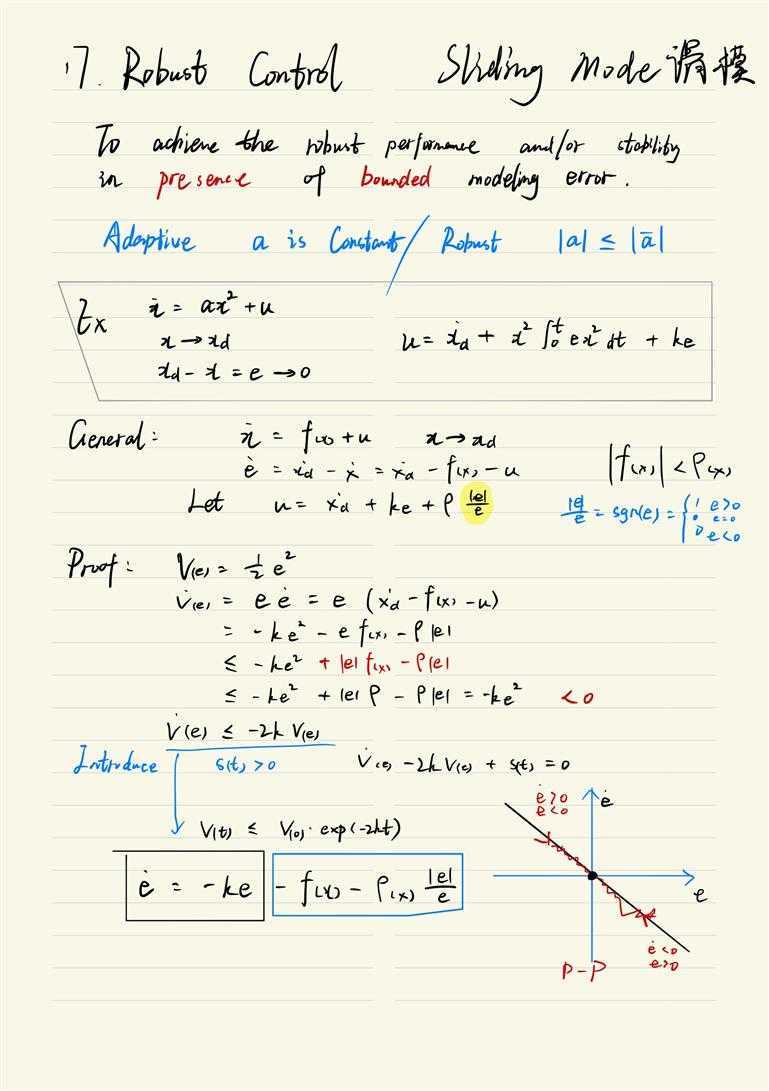 17. Robust Control Sliding Mode 滑模
To achieve the robust performance and/or stability
in presence of bounded modeling error.
Adaptive a is Constant / Robust |a| ≤ |ā|
Ex ẋ = ax² + u
x → xd
xd - x = e → 0
u = ẋd + x² ∫₀ᵗ ex² dt + ke
General: ẋ = f(x) + u x → xd
ė = ẋd - ẋ = ẋd - f(x) - u |f(x)| < ρ(x)
Let u = ẋd + ke + ρ |e|/e
|e|/e = sgn(e) = { 1 e>0
0 e=0
0 e<0
Proof: V(e) = ½ e²
V̇(e) = e ė = e (ẋd - f(x) - u)
= -ke² - e f(x) - ρ|e|
≤ -ke² + |e| f(x) - ρ|e|
≤ -ke² + |e| ρ - ρ|e| = -ke² <0
V̇(e) ≤ -2k V(e)
Introduce S(t) > 0 V̇(e) - 2k V(e) + S(t) = 0
V(t) ≤ V(0) · exp(-2kt)
ė = -ke - f(x) - ρ(x) |e|/e
ė>0
e<0
ė
e
ė<0
e>0
P-P